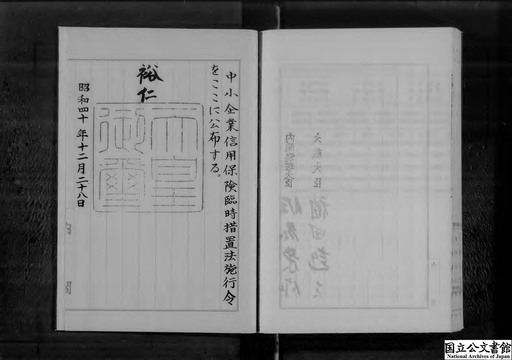 中小企業信用保険臨時措置法施行令
をここに公布する。
裕仁
天皇
御璽
昭和四十年十二月二十八日
大蔵大臣
内閣総理大臣
国立公文書館
National Archives of Japan